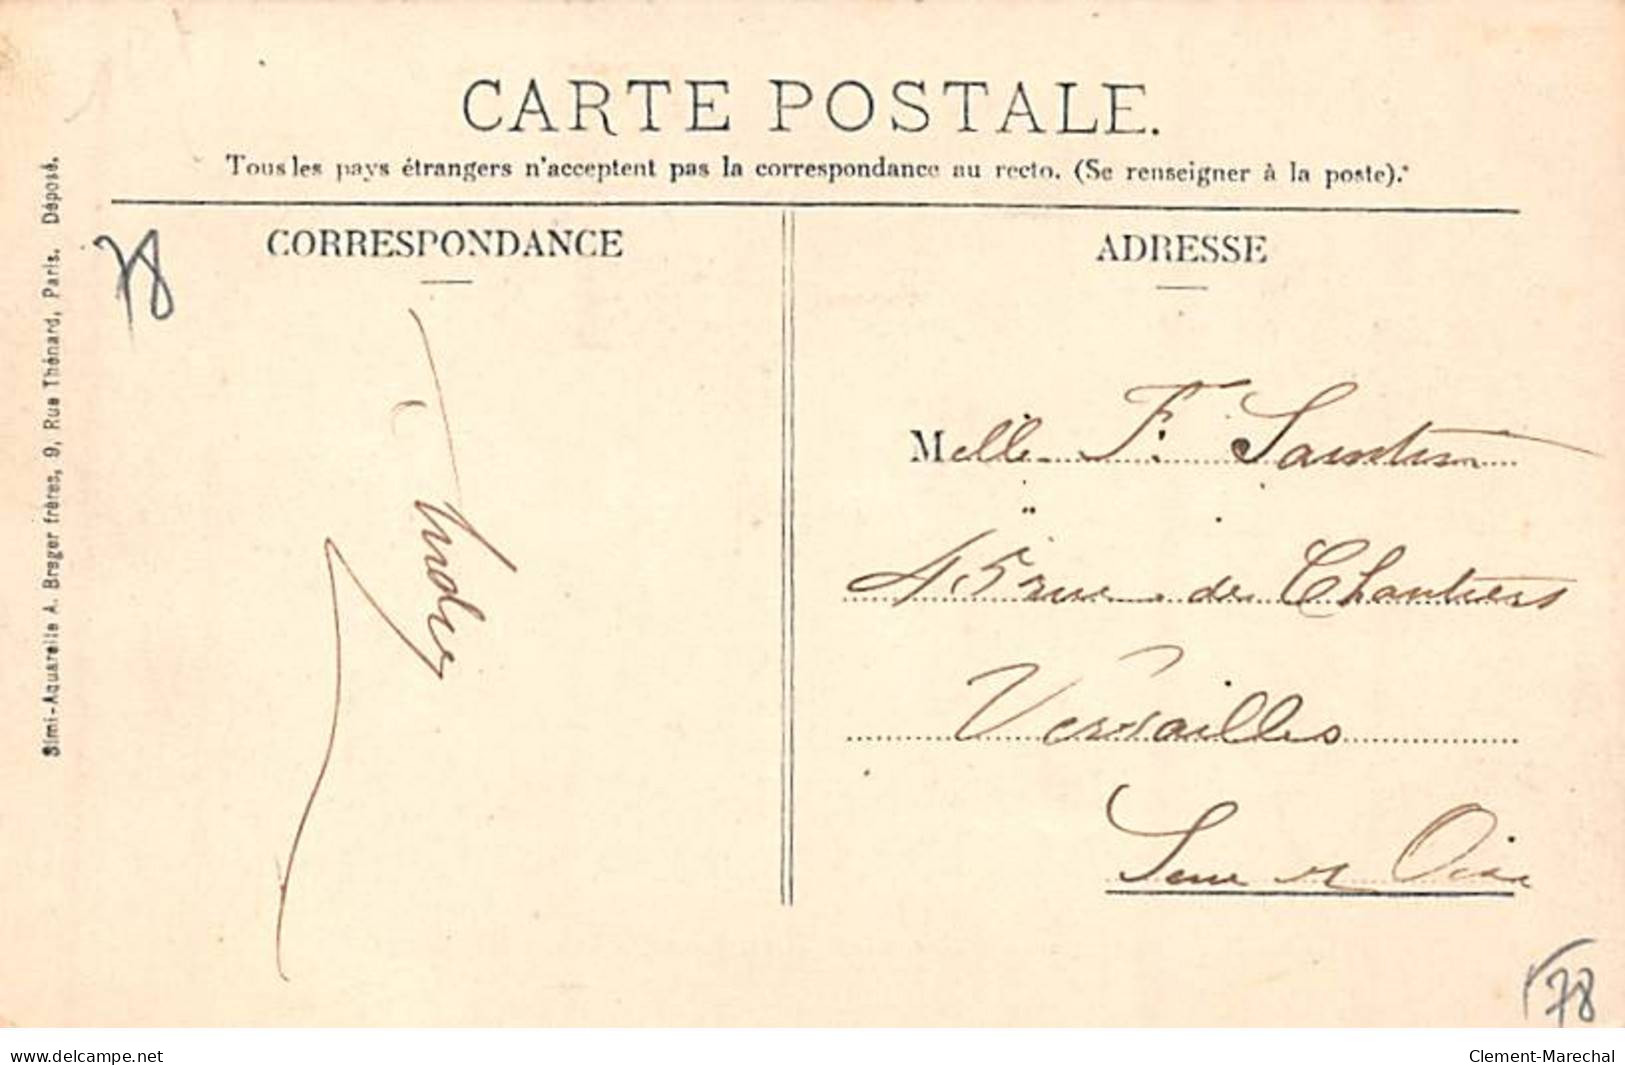 CARTE POSTALE.
Tous les pays étrangers n'acceptent pas la correspondance au recto. (Se renseigner à la poste).
CORRESPONDANCE
ADRESSE
Simi-Aquarelle A. Breger frères, 9, Rue Thénard, Paris. Déposé.
78
André
Melle F. Saintin
45 rue des Chantiers
Versailles
Seine et Oise
78
delcampe.net
Clement-Marechal